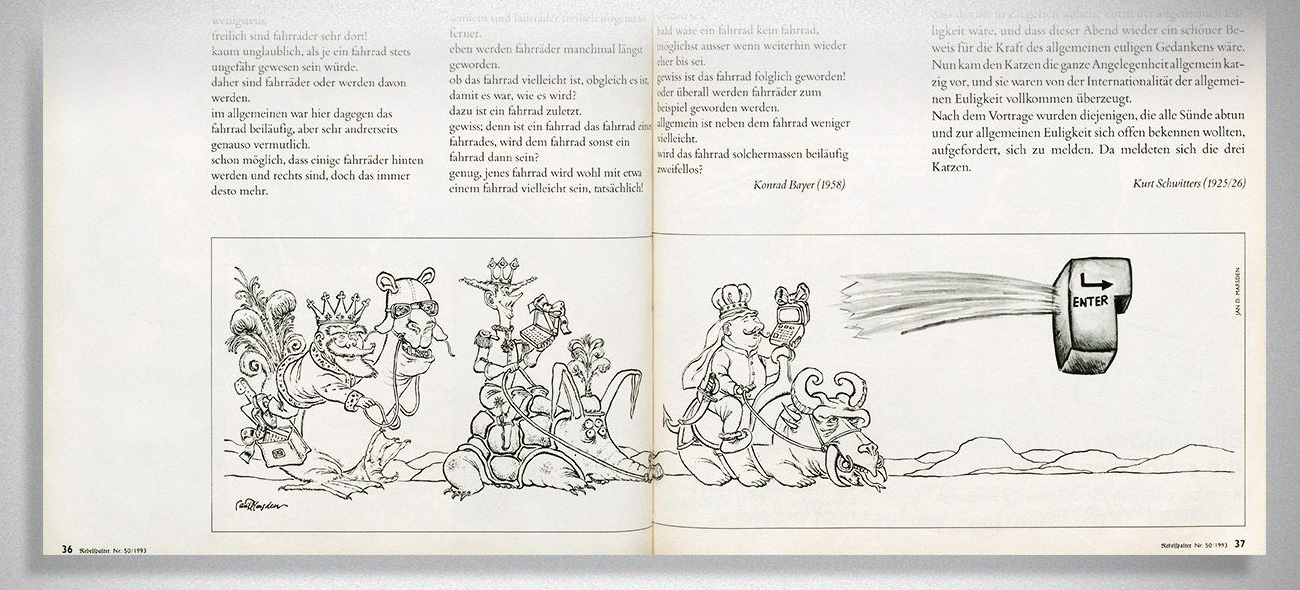 wenigstens.
freilich sind fahrräder sehr dort!
kaum unglaublich, als je ein fahrrad stets
ungefähr gewesen sein würde.
daher sind fahrräder oder werden davon
werden.
im allgemeinen war hier dagegen das
fahrrad beiläufig, aber sehr andrerseits
genauso vermutlich.
schon möglich, dass einige fahrräder hinten
werden und rechts sind, doch das immer
desto mehr.
seitdem sind fahrräder freilich nirgendwo
ferner.
eben werden fahrräder manchmal längst
geworden.
ob das fahrrad vielleicht ist, obgleich es ist,
damit es war, wie es wird?
dazu ist ein fahrrad zuletzt.
gewiss; denn ist ein fahrrad das fahrrad eines
fahrrades, wird dem fahrrad sonst ein
fahrrad dann sein?
genug, jenes fahrrad wird wohl mit etwa
einem fahrrad vielleicht sein, tatsächlich!
bald wäre ein fahrrad kein fahrrad,
möglichst ausser wenn weiterhin wieder
eher bis sei.
gewiss ist das fahrrad folglich geworden!
oder überall werden fahrräder zum
beispiel geworden werden.
allgemein ist neben dem fahrrad weniger
vielleicht.
wird das fahrrad solchermassen beiläufig
zweifellos?
Konrad Bayer (1958)
dass die in allgemeinen Eu-
ligkeit wäre, und dass dieser Abend wieder ein schöner Be-
weis für die Kraft des allgemeinen euligen Gedankens wäre.
Nun kam den Katzen die ganze Angelegenheit allgemein kat-
zig vor, und sie waren von der Internationalität der allgemei-
nen Euligkeit vollkommen überzeugt.
Nach dem Vortrage wurden diejenigen, die alle Sünde abtun
und zur allgemeinen Euligkeit sich offen bekennen wollten,
aufgefordert, sich zu melden. Da meldeten sich die drei
Katzen.
Kurt Schwitters (1925/26)
ENTER
JAN D. MARSDEN
36 Nebelspalter Nr. 50/1993
Nebelspalter Nr. 50/1993 37